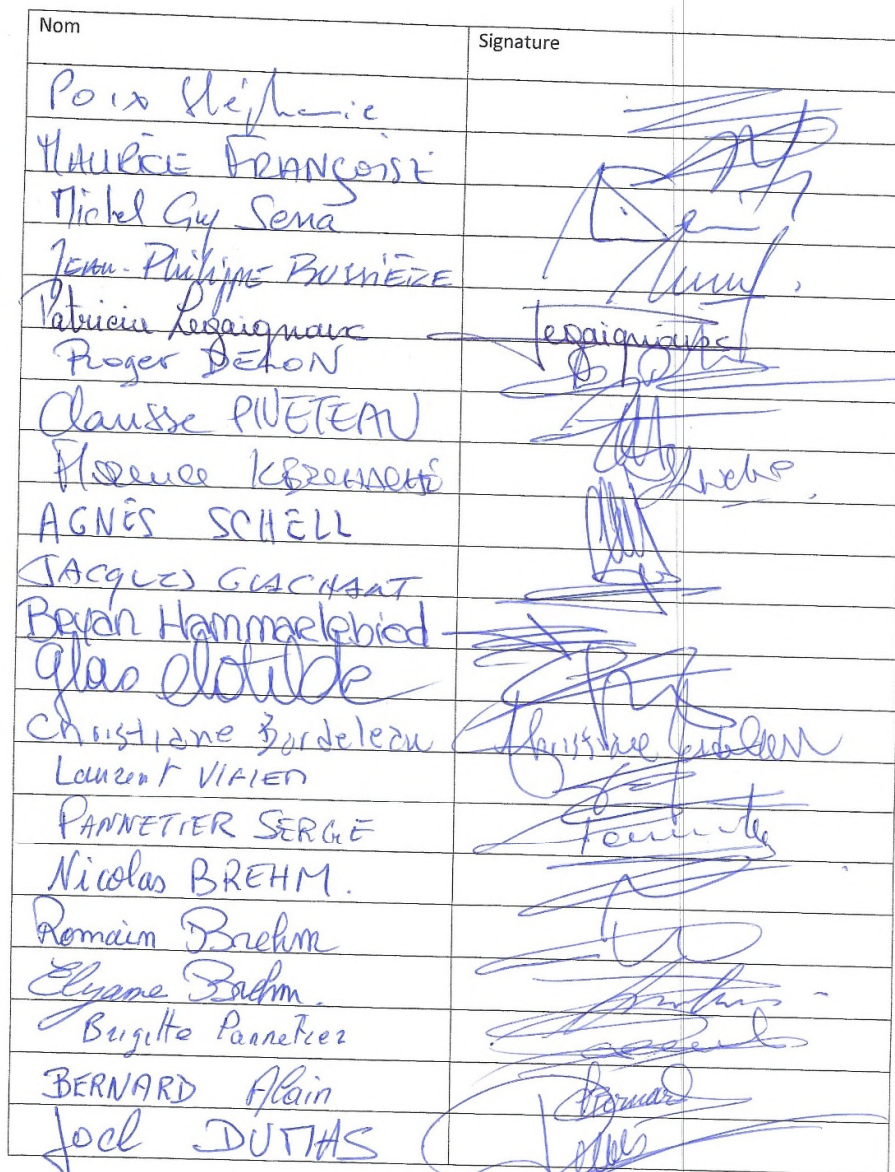 Nom Signature
Poix Stéphanie
MAURICE FRANÇOISE
Michel Guy Serra
Jean-Philippe BUSSIÈRE
Patricia Legaignoux Legaignoux
Roger DELON
Clausse PIVETEAU
Florence
AGNÈS SCHELL
JACQUES GUACHANT
Bryan Hammaelebiod
Glao Clotilde
Christiane Bordeleau Christiane Bordeleau
Laurent VIFIED
PANNETIER SERGE
Nicolas BREHM.
Romain Brehm
Elyame Brehm.
Brigitte Pannetier
BERNARD Alain Bernard
Joel DUMAS